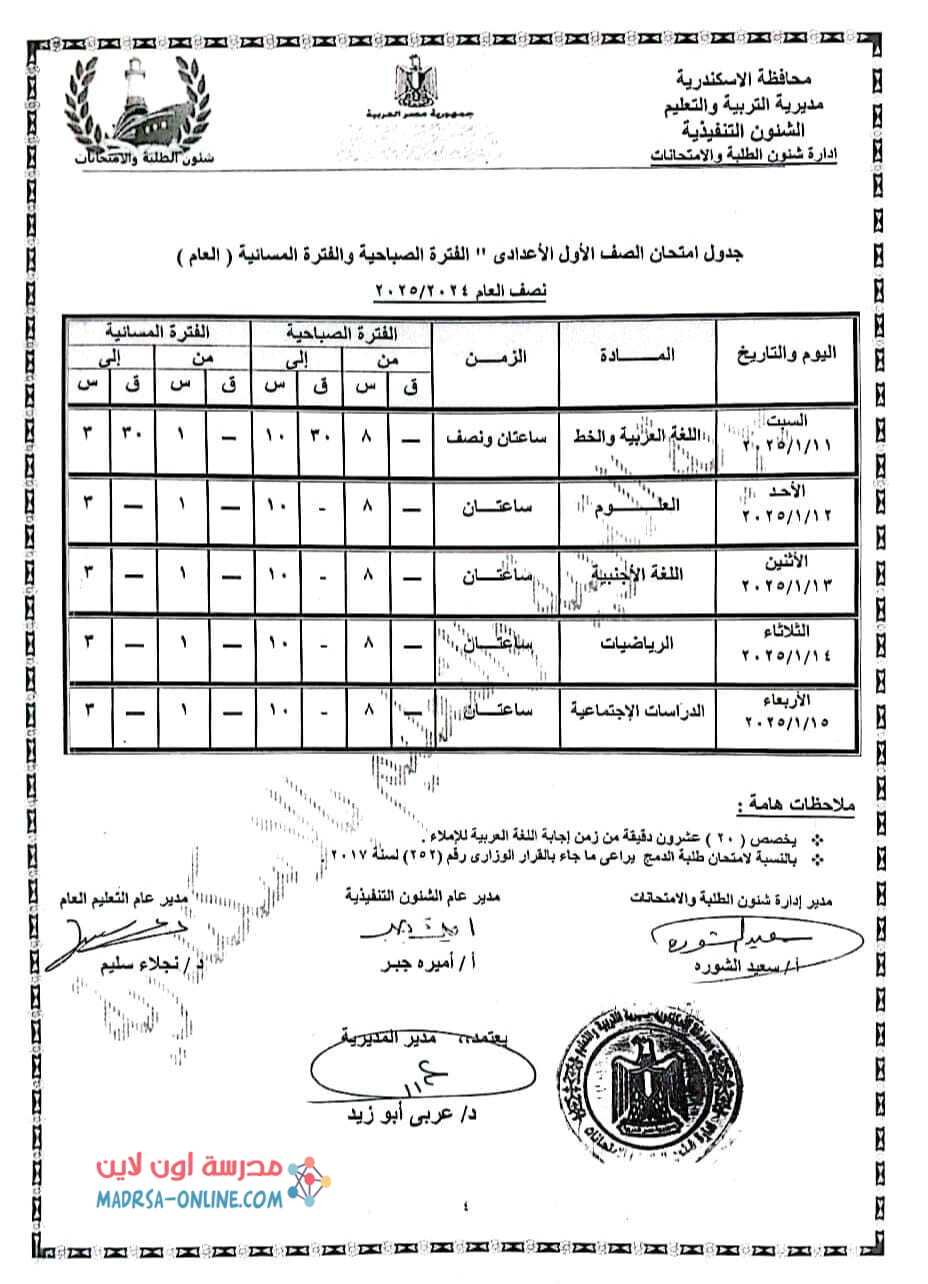 محافظة الاسكندرية
مديرية التربية والتعليم
الشئون التنفيذية
إدارة شئون الطلبة والامتحانات
جمهورية مصر العربية
شئون الطلبة والامتحانات
جدول امتحان الصف الأول الأعدادى " الفترة الصباحية والفترة المسائية ( العام )
نصف العام ٢٠٢٥/٢٠٢٤
اليوم والتاريخ المــــادة الزمــن الفترة الصباحية الفترة المسائية
من إلى من إلى
ق س ق س ق س ق س
السبت ٢٠٢٥/١/١١ اللغة العربية والخط ساعتان ونصف — ٨ ٣٠ ١٠ — ١ ٣٠ ٣
الأحد ٢٠٢٥/١/١٢ العلـــــوم ساعتـــان — ٨ - ١٠ — ١ — ٣
الأثنين ٢٠٢٥/١/١٣ اللغة الأجنبية ساعتـــان — ٨ - ١٠ — ١ — ٣
الثلاثاء ٢٠٢٥/١/١٤ الرياضيات ساعتـــان — ٨ - ١٠ — ١ — ٣
الأربعاء ٢٠٢٥/١/١٥ الدراسات الإجتماعية ساعتـــان — ٨ - ١٠ — ١ — ٣
ملاحظات هامة :
يخصص ( ٢٠ ) عشرون دقيقة من زمن إجابة اللغة العربية للإملاء .
بالنسبة لامتحان طلبة الدمج يراعى ما جاء بالقرار الوزارى رقم (٢٥٢) لسنة ٢٠١٧ .
مدير إدارة شئون الطلبة والامتحانات
مدير عام الشئون التنفيذية
مدير عام التعليم العام
أ/ سعيد الشوره
أ/ أميره جبر
د/ نجلاء سليم
يعتمد،،، مدير المديرية
د/ عربى أبو زيد
مدرسة اون لاين
MADRSA-ONLINE.COM
٤